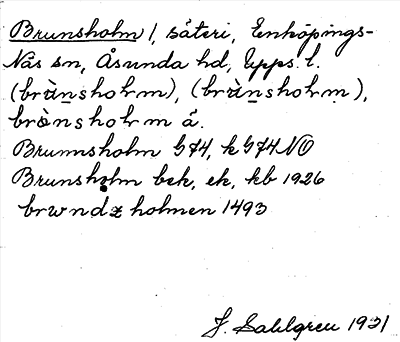 Brunsholm /, säteri, Enköpings-
Näs sn, Åsunda hd, Upps. l.
(brùnsholm), (brùnsholm),
brònsholm ä.
Brunnsholm G74, k G74NO
Brunsholm bek, ek, kb 1926
brwndz holmen 1493
J. Sahlgren 1931